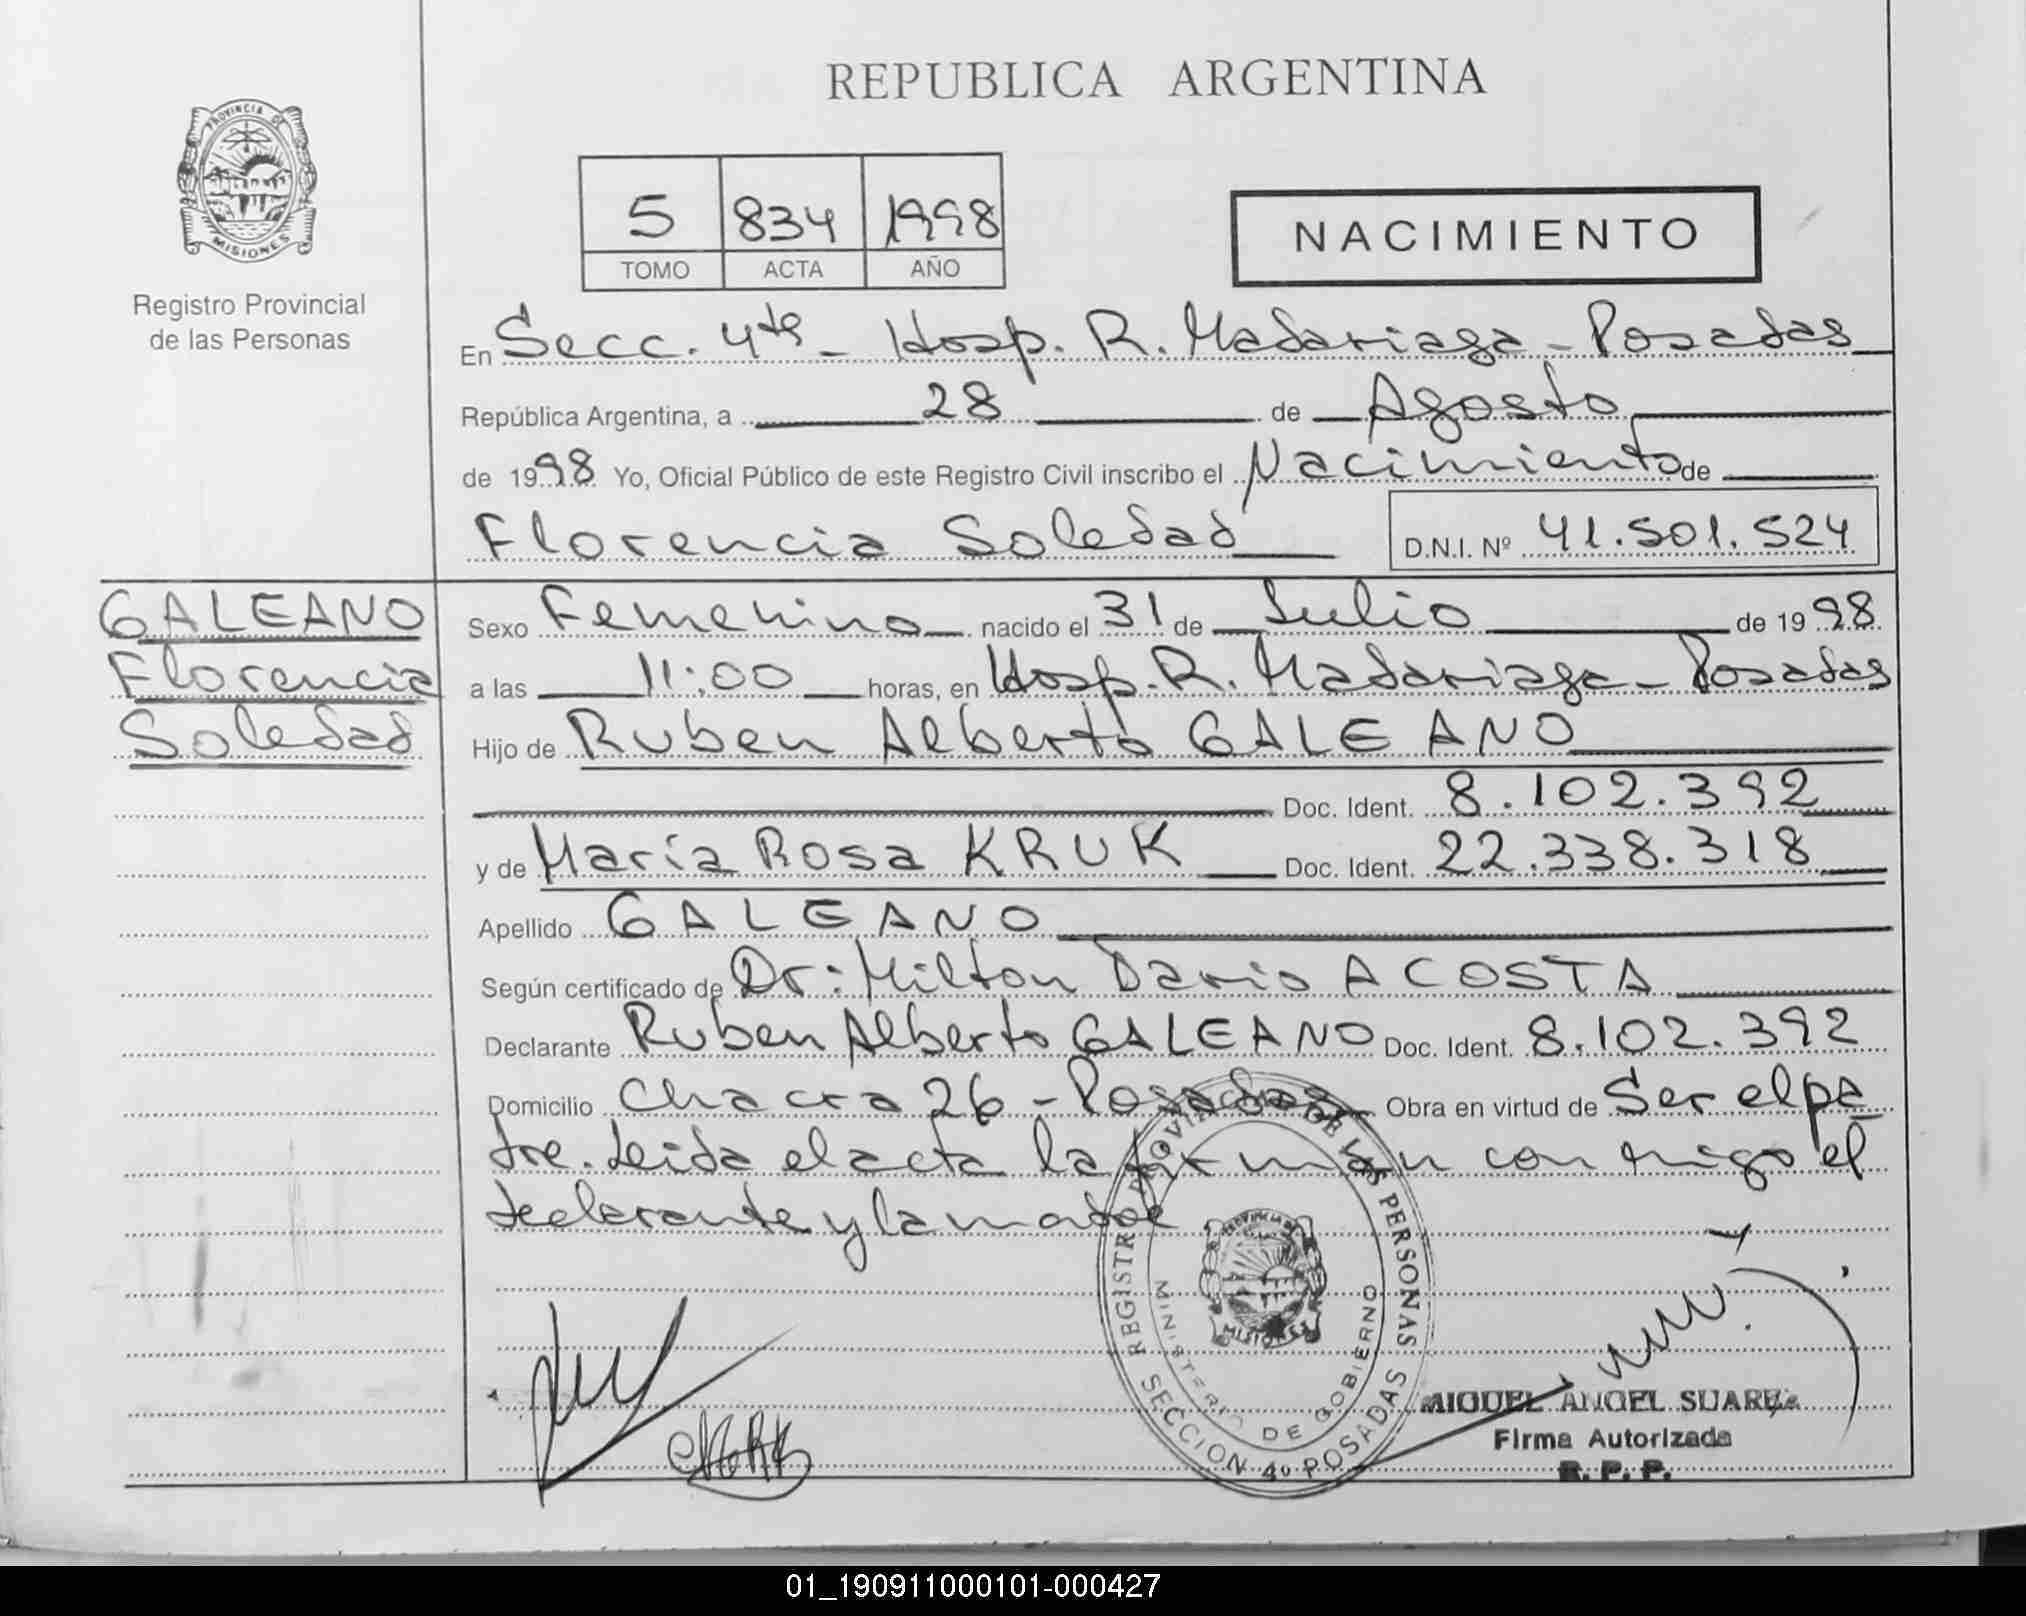 REPUBLICA ARGENTINA
PROVINCIA DE
MISIONES
Registro Provincial
de las Personas
5 834 1998
TOMO ACTA AÑO
NACIMIENTO
En Secc. 4ta - Hosp. R. Madariaga - Posadas
República Argentina, a 28 de Agosto
de 1998 Yo, Oficial Público de este Registro Civil inscribo el Nacimiento de
Florencia Soledad D.N.I. Nº 41.501.524
GALEANO
Florencia
Soledad
Sexo Femenino nacido el 31 de Julio de 1998.
a las 11:00 horas, en Hosp. R. Madariaga - Posadas
Hijo de Ruben Alberto GALEANO
Doc. Ident. 8.102.392
y de María Rosa KRUK Doc. Ident. 22.338.318
Apellido GALEANO
Según certificado de Dr: Milton Dario ACOSTA
Declarante Ruben Alberto GALEANO Doc. Ident. 8.102.392
Domicilio Chacra 26 - Posadas Obra en virtud de Ser el pa
dre. Leida el acta la firman con migo el
declarante y la madre
REGISTRO PROVINCIAL DE LAS PERSONAS
MINISTERIO DE GOBIERNO
PROVINCIA DE
MISIONES
SECCION 4º POSADAS
MIGUEL ANGEL SUAREZ
Firma Autorizada
R. P. P.
01_190911000101-000427